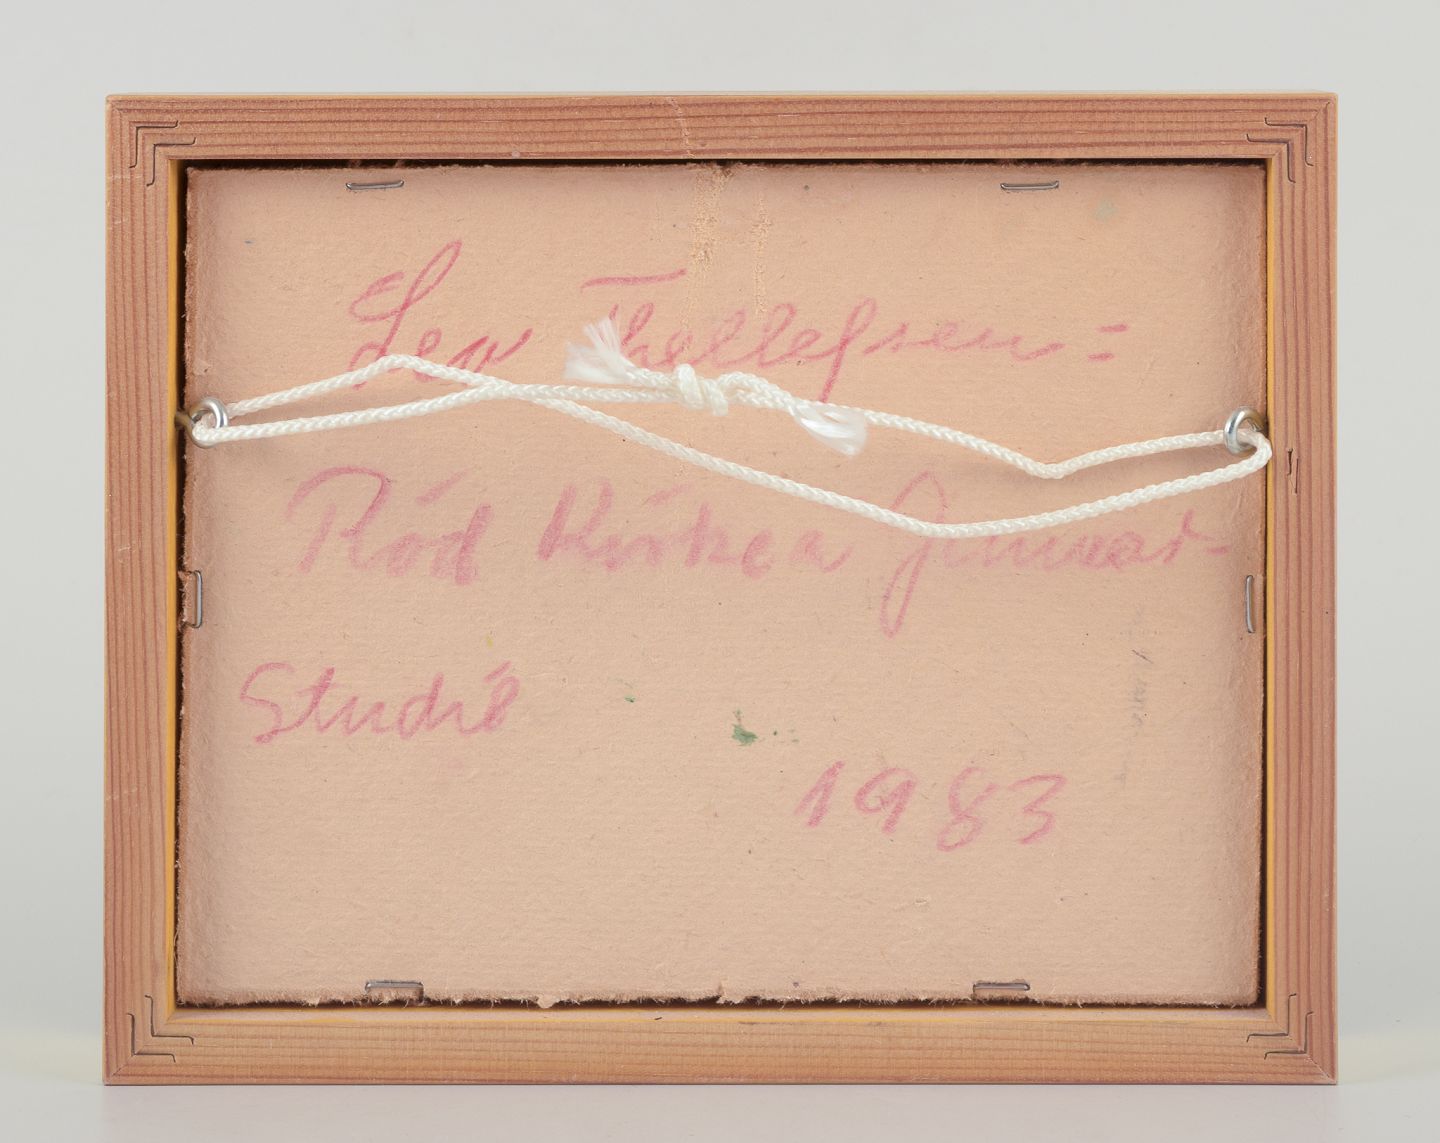 Leo Thellefsen =
Röd Kürken Januar-
Studié
1983